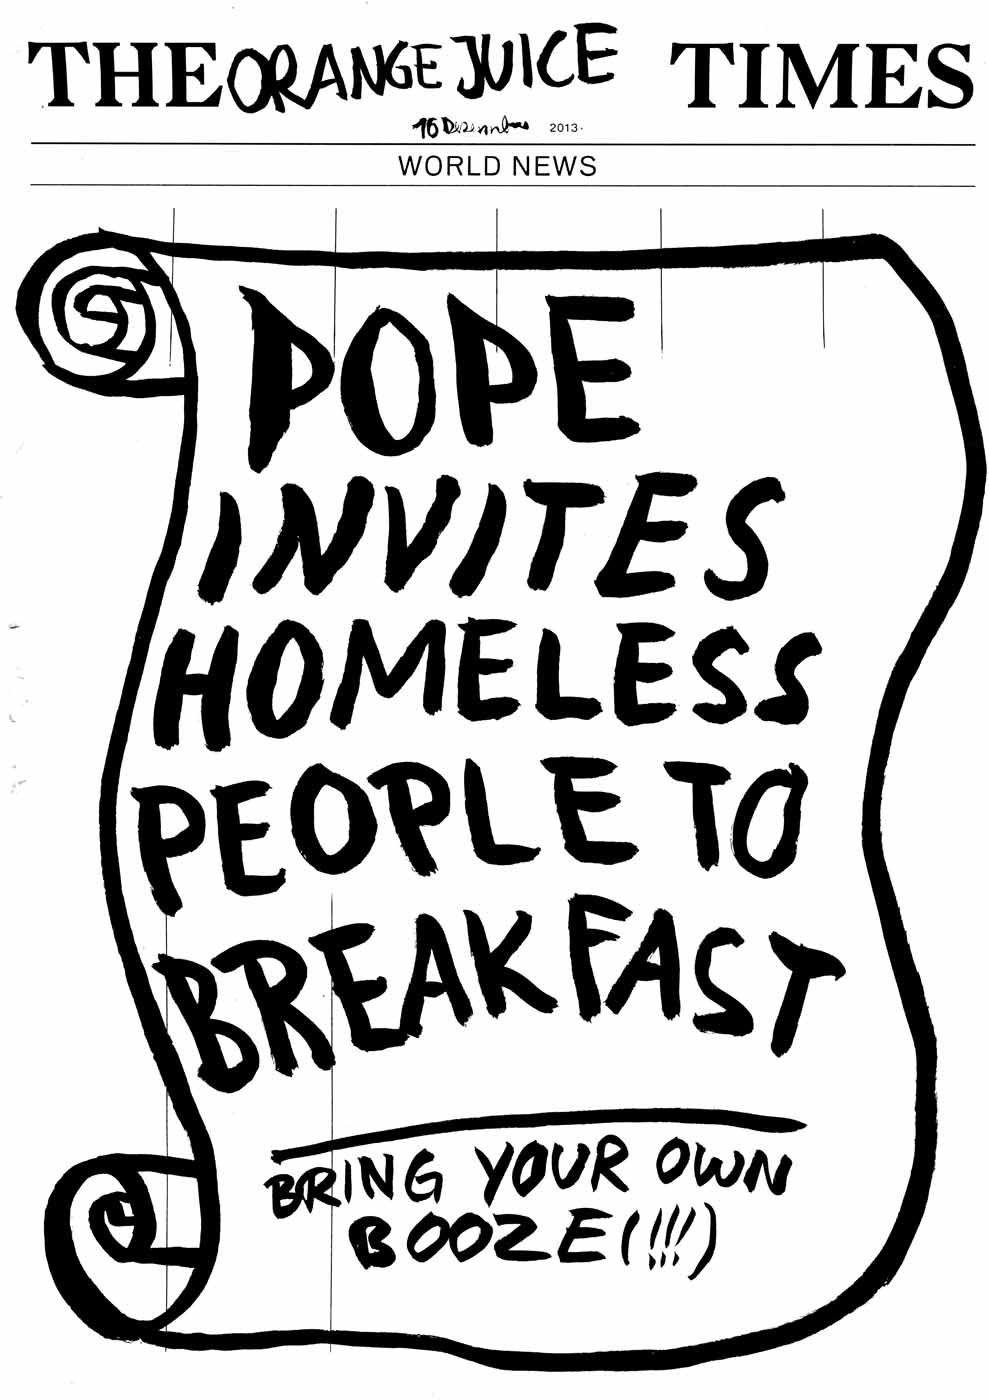 THE ORANGE JUICE TIMES
16 Dezember 2013.
WORLD NEWS
POPE
INVITES
HOMELESS
PEOPLE TO
BREAKFAST
BRING YOUR OWN
BOOZE (!!!)